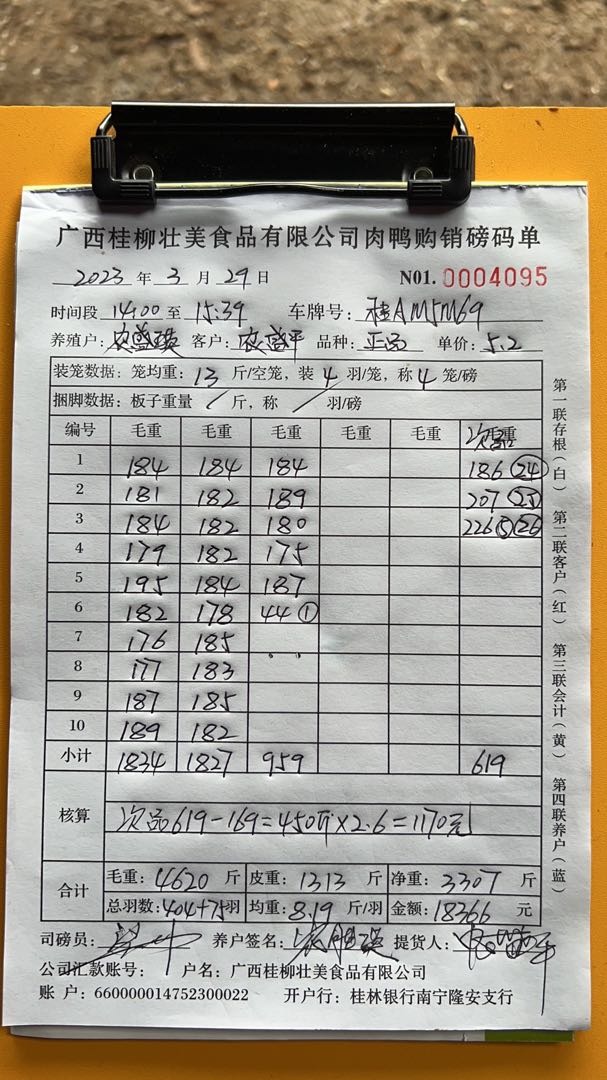 广西桂柳壮美食品有限公司肉鸭购销磅码单
2023 年 3 月 29 日 N01. 0004095
时间段 14:00 至 15:39 车牌号: 桂AM5M69
养殖户: 客户: 农盛平 品种: 正品 单价: 5.2
装笼数据: 笼均重: 13 斤/空笼, 装 4 羽/笼, 称 4 笼/磅
捆脚数据: 板子重量 / 斤, 称 / 羽/磅
编号 毛重 毛重 毛重 毛重 毛重 次品
1 184 184 184 186 24
2 181 182 189 207 25
3 184 182 180 226 5 26
4 179 182 175
5 195 184 187
6 182 178 44 ①
7 176 185
8 177 183
9 187 185
10 189 182
小计 1834 1827 959 619
核算 次品619-169=450斤×2.6=1170元
合计 毛重: 4620 斤 皮重: 1313 斤 净重: 3307 斤
总羽数: 404+75羽 均重: 8.19 斤/羽 金额: 18366 元
司磅员: 养户签名: 提货人:
公司汇款账号: 户名: 广西桂柳壮美食品有限公司
账 户: 660000014752300022 开户行: 桂林银行南宁隆安支行
第一联存根(白) 第二联客户(红) 第三联会计(黄) 第四联养户(蓝)